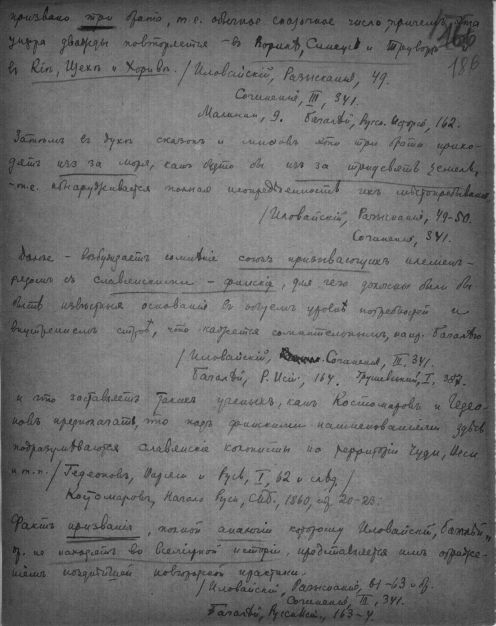 призвано три брата, т.е. обычное сказочное число причемъ эта
166
186
цифра дважды повторяется – въ Рорикѣ, Синеусѣ и Труворѣ
въ Кіѣ, Щекѣ и Хоривѣ. / Иловайскій, Разысканія, 49.
Сочиненія, III, 341.
Малинин, 9. Багалѣй, Русск. Исторія, 162.
Затѣмъ въ духѣ сказокъ и миѳовъ эти три брата прихо-
дятъ изъ за моря, какъ будто бы изъ за тридевять земель,
– т.е. обнаруживается полная неопредѣленность ихъ мѣстопребыванія,
/ Иловайскій, Разысканія, 49-50.
Сочиненія, 341.
Далѣе – возбуждаетъ сомнѣніе союзъ призывающихъ племенъ –
рядомъ съ славянскими – финскія, для чего должны были бы
быть извѣстныя основанія въ общемъ уровнѣ потребностей и
внутреннемъ строѣ, что кажется сомнительнымъ, напр. Багалѣю
/ Иловайскій, Сочиненія, III, 341.
Багалѣй, Р. Ист., 164. Грушевскій, I, 357.
и что заставляетъ такихъ ученыхъ, какъ Костомаровъ и Гедео-
новъ предполагать, что подъ финскими наименованіями здѣсь
подразумѣваются славянскіе колонисты на территоріи Чуди, Веси
и т.п. / Гедеоновъ, Варяги и Русь, I, 62 и слѣд. /
Костомаровъ, Начало Руси, СПб., 1860, 20-23.
Фактъ призванія, полной аналогіи которому Иловайскій, Багалѣй и
др. не находятъ во всемірной исторіи, представляется имъ отраже-
ніемъ позднѣйшей новгородской практики.
/ Иловайскій, Разысканія, 61-63 и др.
Сочиненія, III, 341.
Багалѣй, Русск. Ист., 163-4.